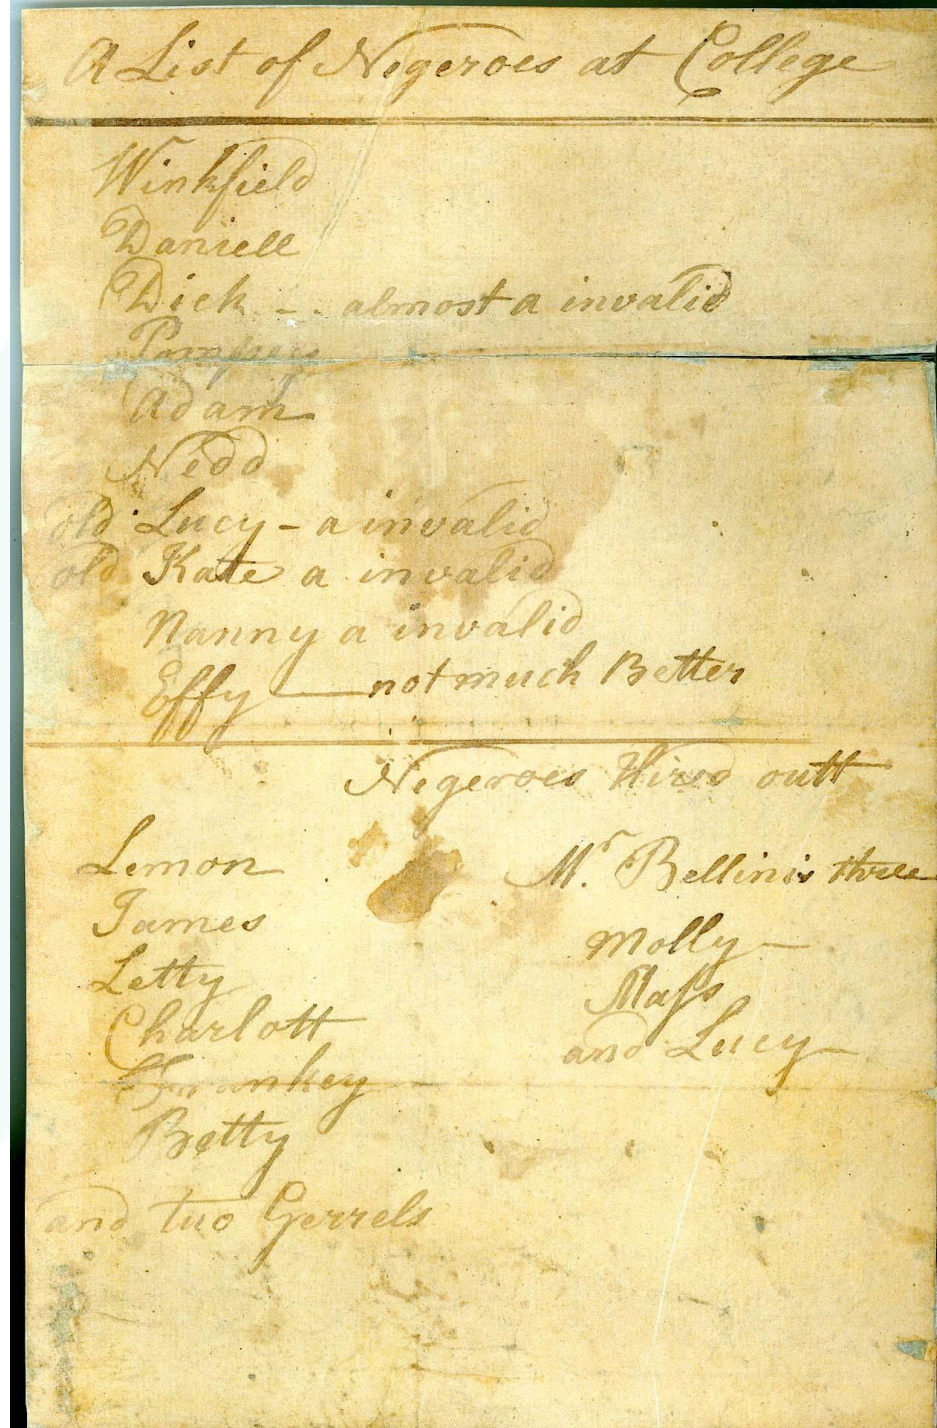 A List of Negeroes at College
Winkfield
Daniell
Dick - . almost a invalid
Pompey
Adam
Nedd
old Lucy - a invalid
old Kate a invalid
Nanny a invalid
Effy — not much Better
Negeroes Hired outt
Lemon
James
Letty
Charlott
Frankey
Betty
and two Gerrels
Mr. Bellini's three
Molly —
Maſs
and Lucy